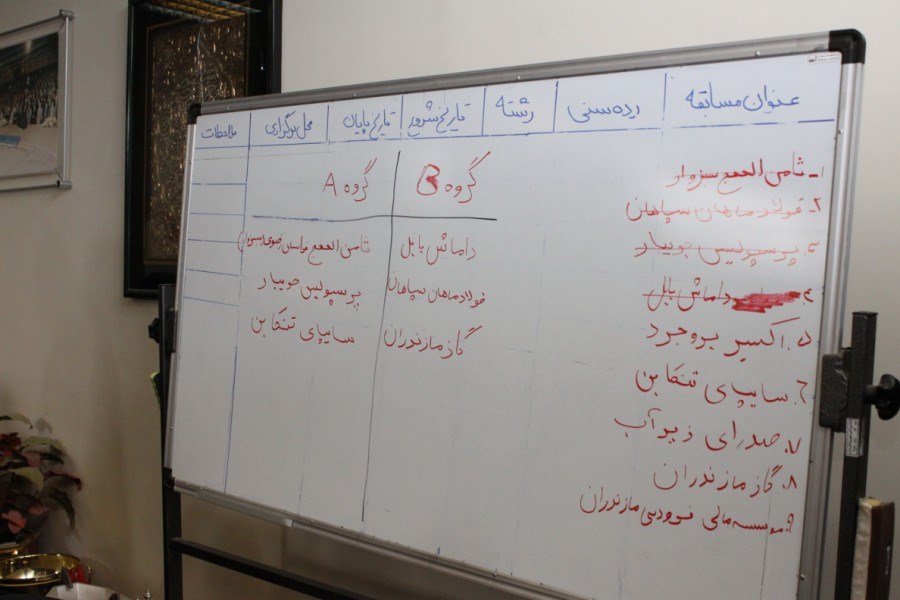 عنوان مسابقه رده سنی رشته تاریخ شروع تاریخ پایان محل برگزاری ملاحظات
گروه B گروه A
۱- ثامن الحجج سبزوار
۲- فولاد ماهان سپاهان
۳- پرسپولیس جویبار
۴- داماش بابل
۵. اکسیر بروجرد
۶. سایپای تنکابن
۷. صدرای زیرآب
۸. گاز مازندران
۹. موسسه مالی فردوسی مازندران
داماش بابل ثامن الحجج خراسان رضوی (سبزوار)
فولاد ماهان سپاهان پرسپولیس جویبار
گاز مازندران سایپای تنکابن